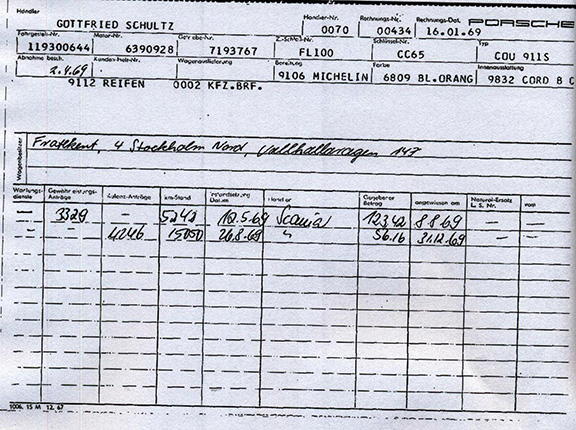 Händler Händler-Nr. Rechnungs-Nr. Rechnungs-Dat. PORSCHE
GOTTFRIED SCHULTZ 0070 00434 16.01.69
Fahrgestell-Nr. Motor-Nr. Getriebe-Nr. Z.-Schl.-Nr. Schlüssel-Nr. Typ
119300644 6390928 7193767 FL100 CC65 COU 911S
Abnahme besch. Kunden-Heft-Nr. Wagenauslieferung Bereifung Farbe Innenausstattung
2.4.69 9106 MICHELIN 6809 BL.ORANG 9832 CORD B C
9112 REIFEN 0002 KFZ.BRF.
Wagenbesitzer
4 Stockholm Nord, 147
Wartungs- Gewährleistungs- Kulanz-Anträge km-Stand Instandsetzung Händler Gegebener angewiesen am Natural-Ersatz vom
dienste Anträge Datum Betrag L. S. Nr.
— 3329 — 5242 12.5.69 Scania 123,42 8.8.69 — —
— 4246 15050 26.8.69 " 56.16 31.12.69 —
1006. 15 M 12. 67